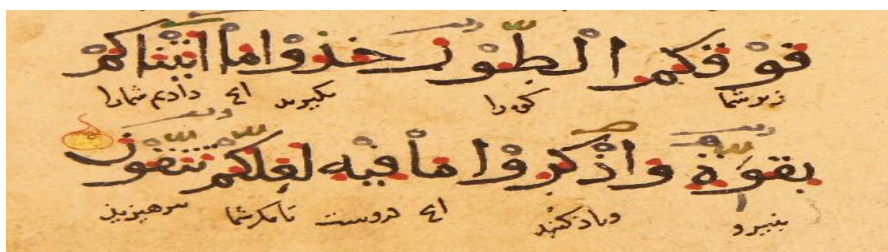 فَوْقَكُمُ الطُّورَ خُذُوا مَا آتَيْنَاكُمْ
زبر شما کوه را بگیرید آنچ دادیم شمارا
بِقُوَّةٍ وَاذْكُرُوا مَا فِيهِ لَعَلَّكُمْ تَتَّقُونَ
بنیرو ویاد کنید آنچ دروست تا مگر شما بپرهیزید